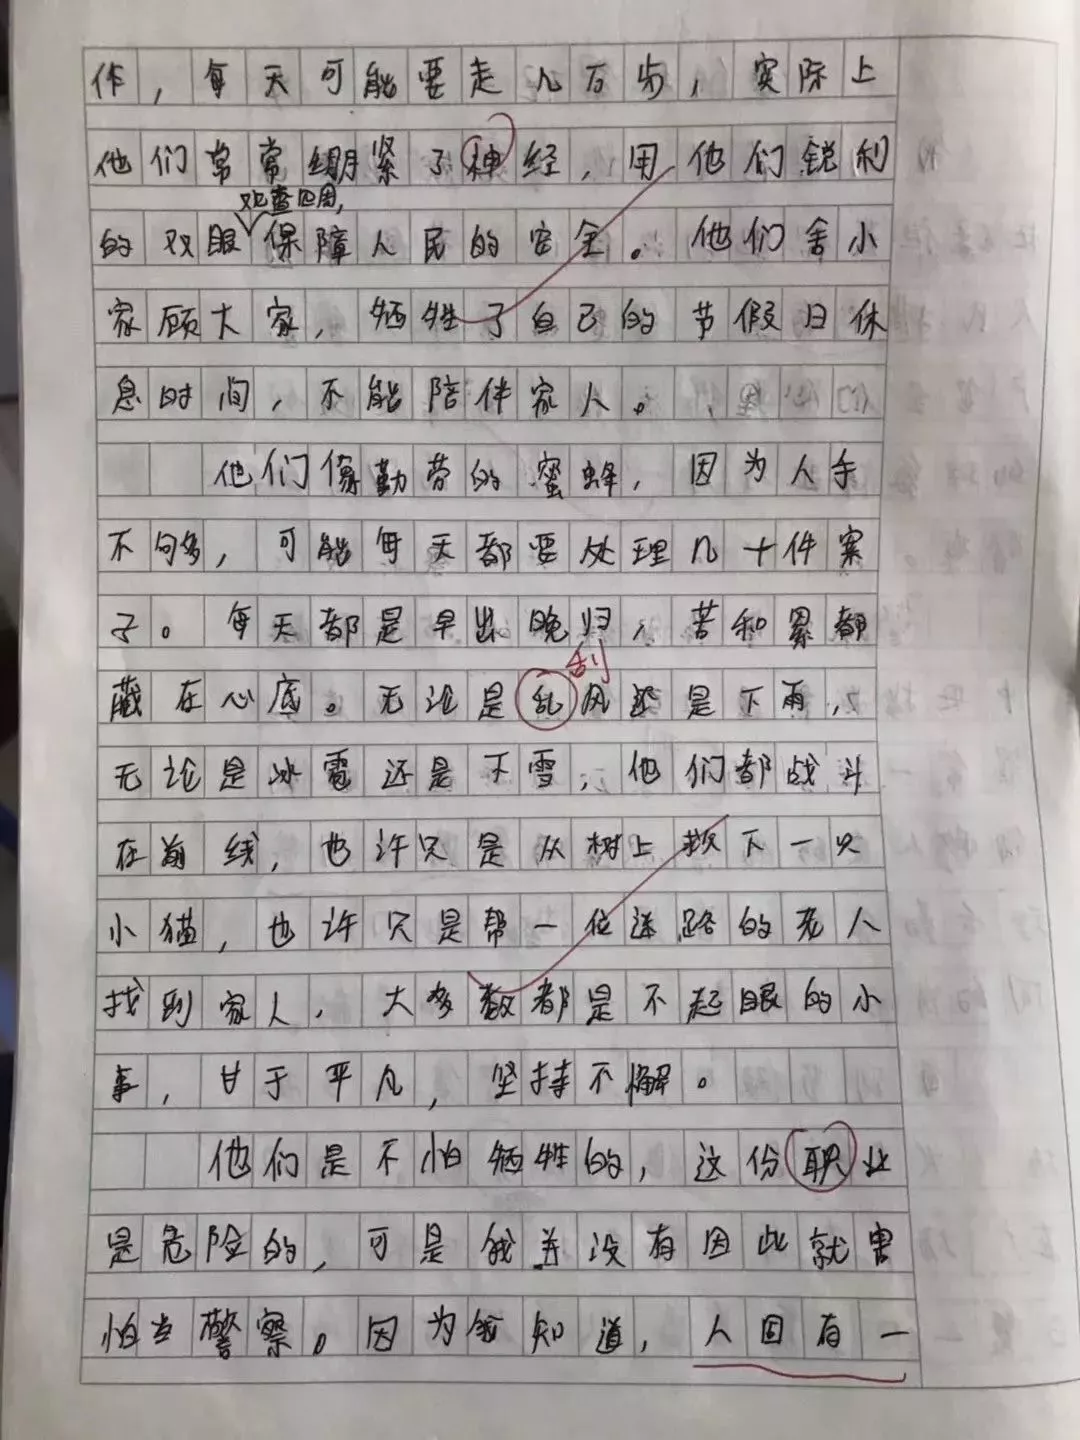 作，每天可能要走几万步，实际上
他们常常绷紧了神经，用他们锐利
观查四周，
的双眼保障人民的安全。他们舍小
家顾大家，牺牲了自己的节假日休
息时间，不能陪伴家人。
他们像勤劳的蜜蜂，因为人手
不句多，可能每天都要处理几十件案
子。每天都是早出晚归，苦和累都
刮
藏在心底。无论是乱风还是下雨，
无论是冰雹还是下雪，他们都战斗
在前线，也许只是从树上救下一只
小猫，也许只是帮一位迷路的老人
找到家人，大多数都是不起眼的小
事，甘于平凡，坚持不懈。
他们是不怕牺牲的，这份职业
是危险的，可是我并没有因此就害
怕当警察。因为我知道，人固有一